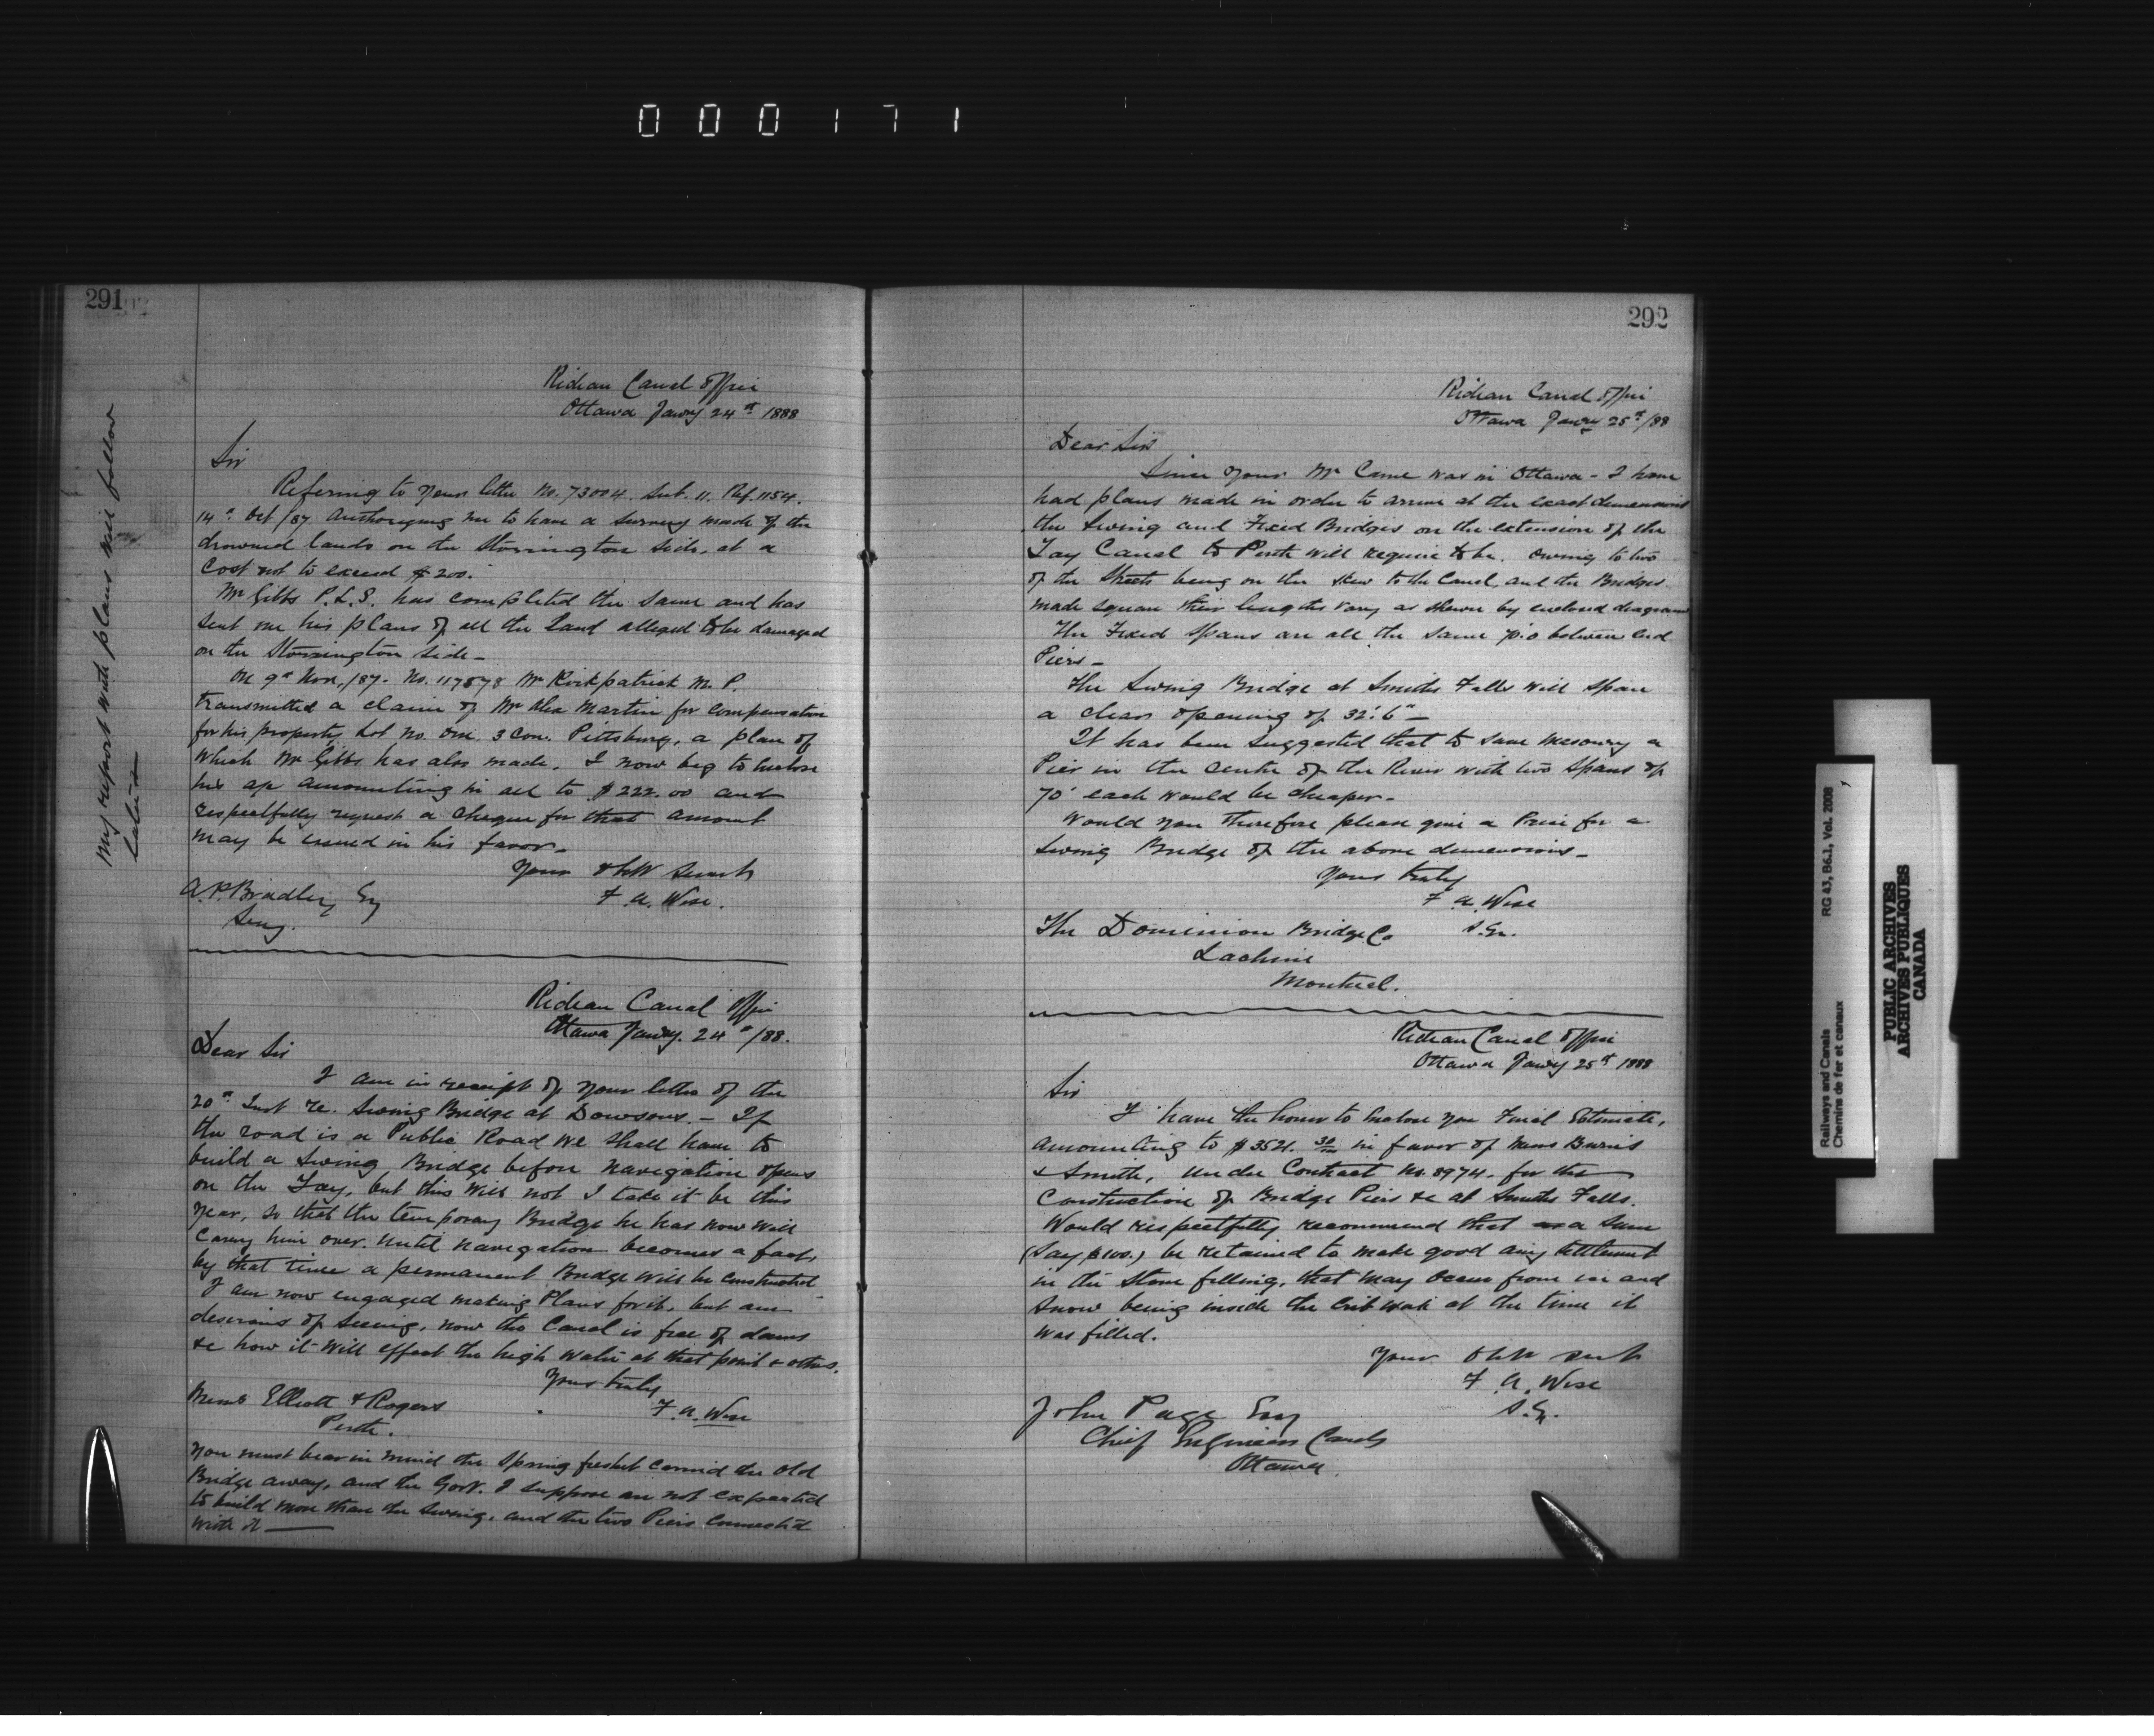 000171
291
My report with plans will follow
later
Rideau Canal Office
Ottawa Jany 24th 1888
Sir
Refering to your letter No. 73004. Sub. 11. Ref. 1154.
14th Oct/87 Authorizing me to have a survey made of the
drowned lands on the Storrington side, at a
Cost not to exceed $200.
Mr Gibbs P.L.S. has completed the same and has
sent me his plans of all the Land alleged to be damaged
on the Storrington side_
On 9th Nov./87. No. 117878 Mr Kirkpatrick M.P.
transmitted a claim of Mr Alex Martin for compensation
for his property Lot No. One. 3 Con. Pittsburg, a plan of
which Mr Gibbs has also made. I now beg to enclose
his a/c amounting in all to $222.00 and
respectfully request a cheque for that amount
may be issued in his favor_
Your obt Servt
F. A. Wise.
A. P. Bradley Esq
Secy.
Rideau Canal Office
Ottawa Jany. 24th/88.
Dear Sir
I am in receipt of your letter of the
20th Inst re. Swing Bridge at Dowsons. – If
the road is a Public Road we shall have to
build a Swing Bridge before navigation opens
on the Tay, but this will not I take it be this
year, so that the temporary Bridge he has now will
carry him over. until navigation becomes a fact,
by that time a permanent Bridge will be constructed
I am now engaged making Plans for it, but am
desirous of seeing, now the Canal is free of dams
&c how it will effect the high water at that point & others.
Yours truly
F. A. Wise
Messrs Elliott & Rogers
Perth.
You must bear in mind the Spring freshet carried the old
Bridge away, and the Govt. I suppose are not expected
to build more than the swing, and the two Piers connected
with it
292
Rideau Canal Office
Ottawa Jany 25th/88
Dear Sir
Since your Mr Came was in Ottawa – I have
had plans made in order to arrive at the exact dimensions
the Swing and Fixed Bridges on the extension of the
Tay Canal to Perth will require to be. Owing to two
of the Streets being on the skew to the Canal, and the Bridges
made square their lengths vary as shewn by enclosed diagrams
The Fixed Spans are all the same 70'.0 between End
Piers_
The Swing Bridge at Smiths Falls will span
a clear opening of 32'.6"_
It has been suggested that to save masonry a
Pier in the centre of the River with two Spans of
70' each would be cheaper.
Would you therefore please give a Price for a
Swing Bridge of the above dimensions_
Yours truly
F. A. Wise
S. En.
The Dominion Bridge Co
Lachine
Montreal.
Rideau Canal Office
Ottawa Jany 25th 1888
Sir
I have the honor to enclose you Final Estimate,
amounting to $3521. in favor of Messrs Burns
& Smith, under Contract No. 8974. for the
Construction of Bridge Piers &c at Smiths Falls.
Would respectfully recommend that a sum
(Say $100.) be retained to make good any settlement
in the stone filling, that may occur from ice and
snow being inside the Crib work at the time it
was filled.
Your obt
F. A. Wise
S. En.
John Page Esq
Chief Engineer Canals
Ottawa.
Railways and Canals RG 43, B6.1, Vol. 2008
Chemins de fer et canaux
PUBLIC ARCHIVES
ARCHIVES PUBLIQUES
CANADA